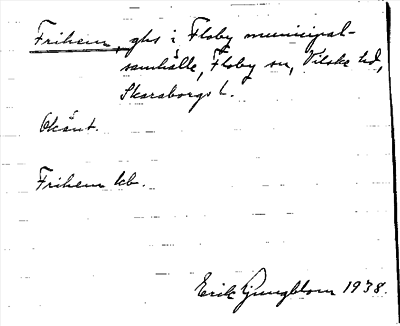 Frihem, ghs i Floby municipal-
samhälle, Floby sn, Vilske hd,
Skaraborgs l.
Okänt.
Frihem kb.
Erik Ljungblom 1938.